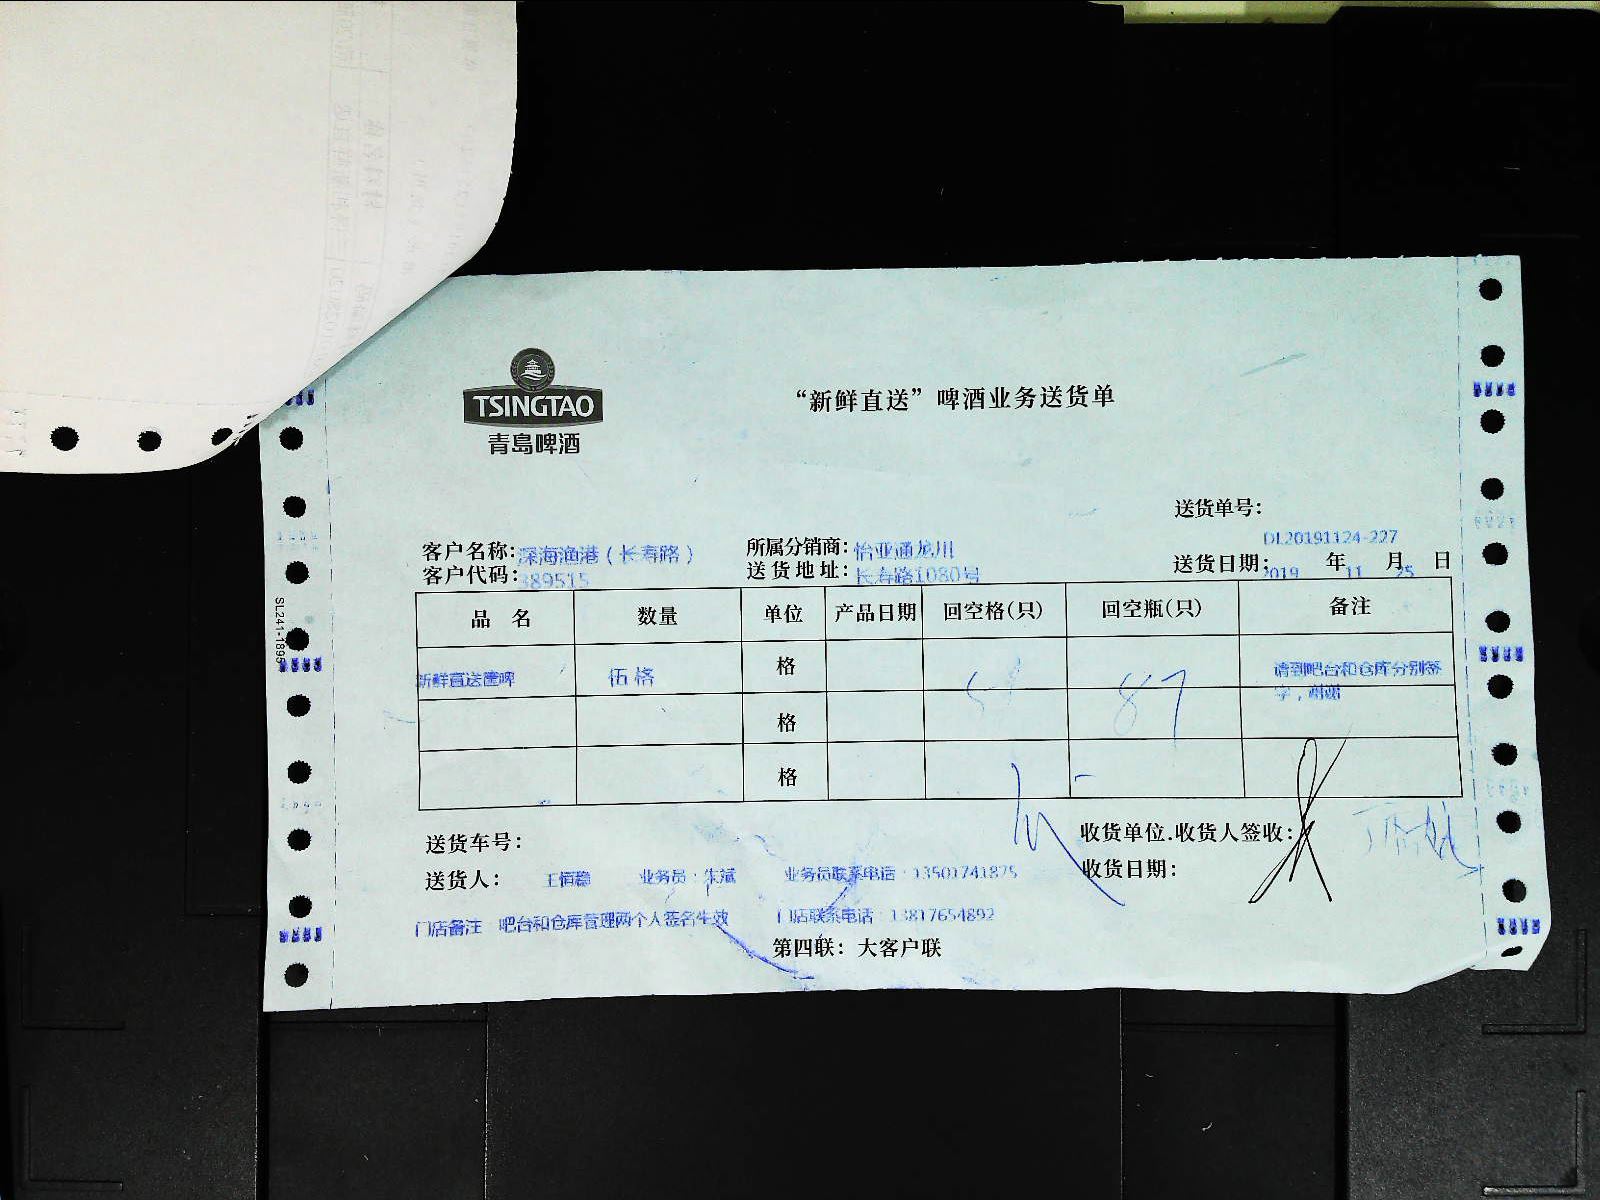 TSINGTAO
青岛啤酒
“新鲜直送”啤酒业务送货单
送货单号：
DL20191124-227
客户名称：深海渔港（长寿路） 所属分销商：怡亚通龙川 送货日期：2019 年 11 月 25 日
客户代码：389515 送货地址：长寿路1080号
品 名 数量 单位 产品日期 回空格(只) 回空瓶(只) 备注
新鲜直送篚啤 伍格 格 87 请到吧台和仓库分别签字，谢谢
格
格
送货车号： 收货单位.收货人签收：
送货人： 业务员：朱斌 业务员联系电话：13501741875 收货日期：
门店备注 吧台和仓库管理两个人签名生效 门店联系电话：13817654892
第四联：大客户联